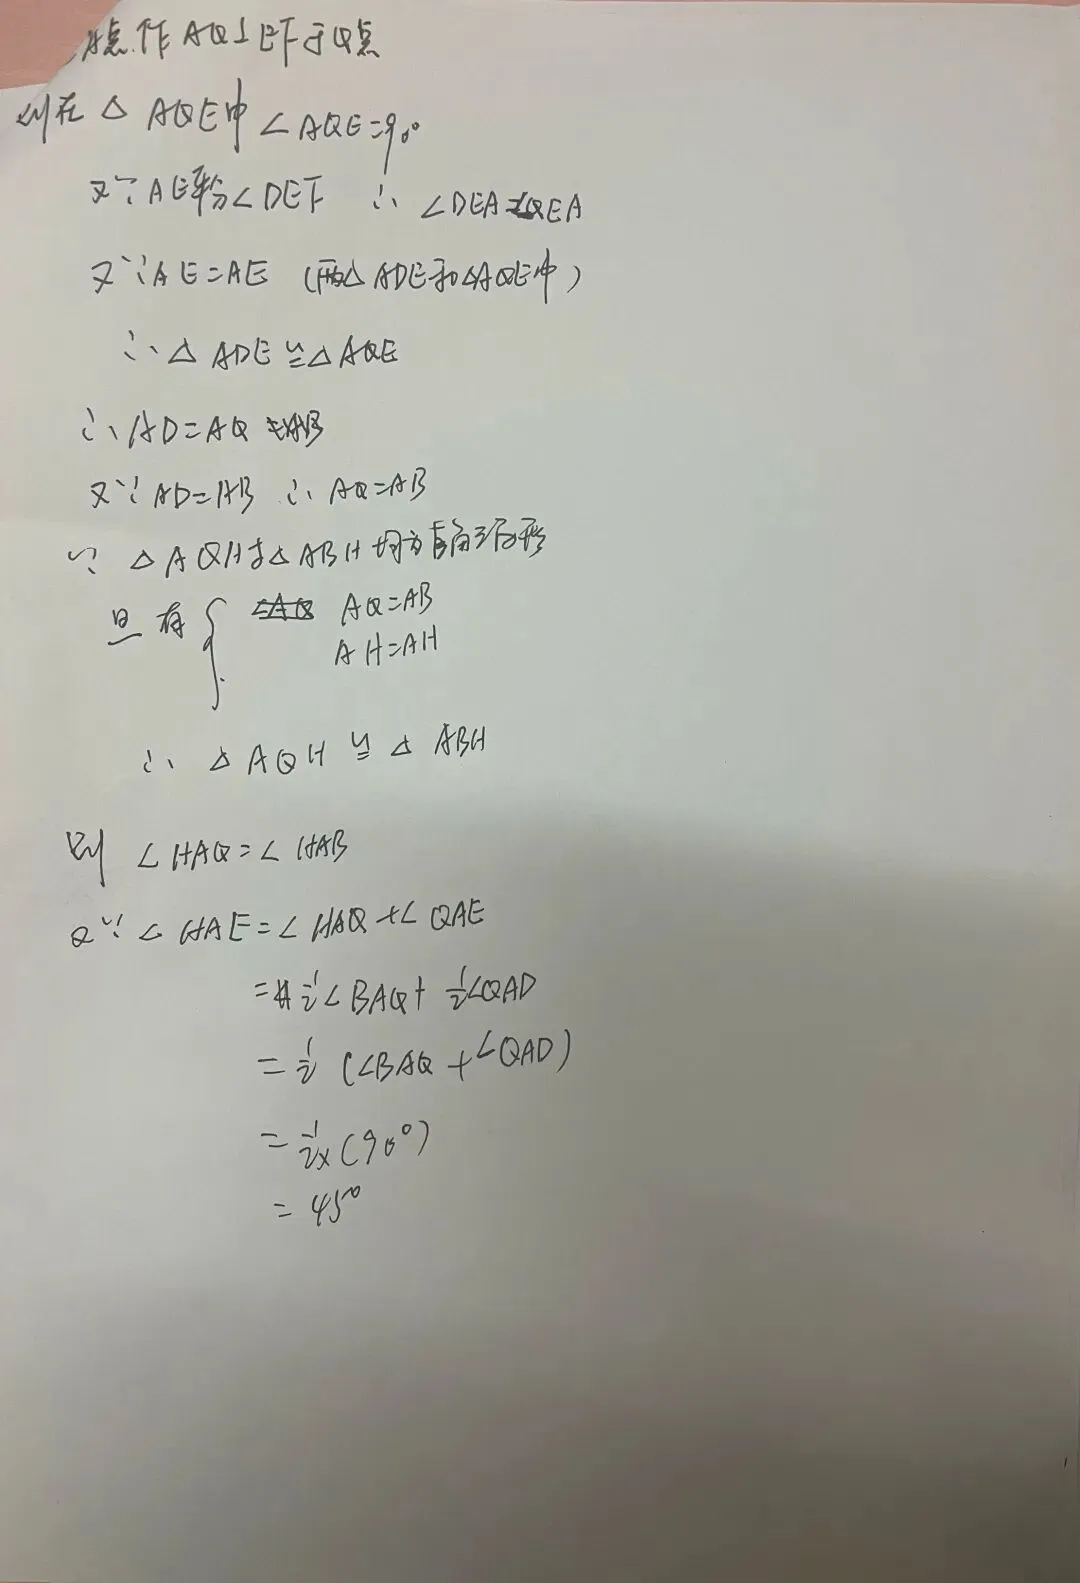 点作AQ⊥EF于Q点
则在△AQE中∠AQE=90°
又∵AE平分∠DEF ∴∠DEA=∠QEA
又∵AE=AE (两△ADE和△AQE中)
∴△ADE≌△AQE
∴AD=AQ
又∵AD=AB ∴AQ=AB
∵△AQH与△ABH均为直角三角形
且有{ AQ=AB
AH=AH
∴△AQH≌△ABH
则∠HAQ=∠HAB
又∵∠HAE=∠HAQ+∠QAE
=½∠BAQ+½∠QAD
=½(∠BAQ+∠QAD)
=½×(90°)
=45°